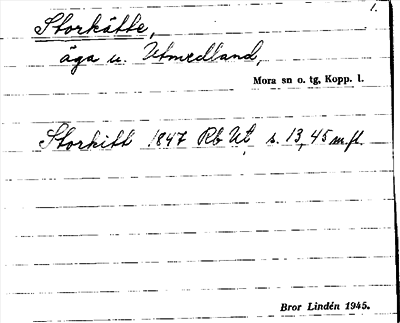 1.
Storkätte,
äga u. Utmedland,
Mora sn o. tg, Kopp. l.
Storkitt 1847 Rb Ut s. 13, 45 m.fl.
Bror Lindén 1945.